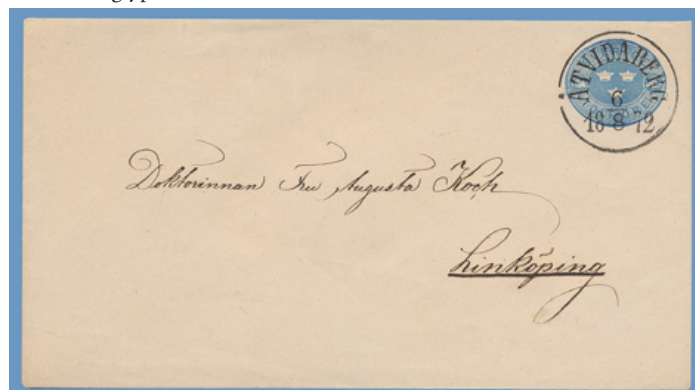 ÅTVIDABERG
6
18 8 72
Doktorinnan Fru Augusta Koch
Linköping